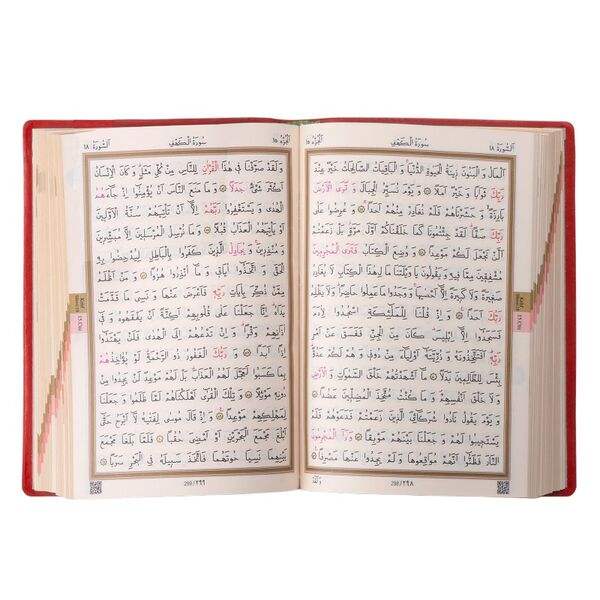 اَلسُّورَةُ ١٨ سُورَةُ الْكَهْفِ اَلْجُزْءُ ١٥
اَلْمَالُ وَ الْبَنُونَ زِينَةُ الْحَيٰوةِ الدُّنْيَا وَ الْبَاقِيَاتُ الصَّالِحَاتُ خَيْرٌ عِنْدَ
رَبِّكَ ثَوَابًا وَ خَيْرٌ اَمَلًا ۞ وَ يَوْمَ نُسَيِّرُ الْجِبَالَ وَ تَرَى الْاَرْضَ
بَارِزَةً وَ حَشَرْنَاهُمْ فَلَمْ نُغَادِرْ مِنْهُمْ اَحَدًا ۞ وَ عُرِضُوا عَلٰى
رَبِّكَ صَفًّا لَقَدْ جِئْتُمُونَا كَمَا خَلَقْنَاكُمْ اَوَّلَ مَرَّةٍ بَلْ زَعَمْتُمْ
اَلَّنْ نَجْعَلَ لَكُمْ مَوْعِدًا ۞ وَ وُضِعَ الْكِتَابُ فَتَرَى الْمُجْرِمِينَ
مُشْفِقِينَ مِمَّا فِيهِ وَ يَقُولُونَ يَا وَيْلَتَنَا مَا لِ هٰذَا الْكِتَابِ لَا يُغَادِرُ
صَغِيرَةً وَ لَا كَبِيرَةً اِلَّا اَحْصٰيهَا وَ وَجَدُوا مَا عَمِلُوا حَاضِرًا وَ لَا يَظْلِمُ
رَبُّكَ اَحَدًا ۞ وَ اِذْ قُلْنَا لِلْمَلٰئِكَةِ اسْجُدُوا لِاٰدَمَ
فَسَجَدُوا اِلَّا اِبْلِيسَ كَانَ مِنَ الْجِنِّ فَفَسَقَ عَنْ اَمْرِ
رَبِّهِ اَفَتَتَّخِذُونَهُ وَ ذُرِّيَّتَهُ اَوْلِيَاءَ مِنْ دُونِي وَ هُمْ لَكُمْ عَدُوٌّ
بِئْسَ لِلظَّالِمِينَ بَدَلًا ۞ مَا اَشْهَدْتُهُمْ خَلْقَ السَّمٰوَاتِ وَ الْاَرْضِ
وَ لَا خَلْقَ اَنْفُسِهِمْ وَ مَا كُنْتُ مُتَّخِذَ الْمُضِلِّينَ عَضُدًا ۞
وَ يَوْمَ يَقُولُ نَادُوا شُرَكَائِيَ الَّذِينَ زَعَمْتُمْ فَدَعَوْهُمْ فَلَمْ
يَسْتَجِيبُوا لَهُمْ وَ جَعَلْنَا بَيْنَهُمْ مَوْبِقًا ۞ وَ رَاَ الْمُجْرِمُونَ
النَّارَ فَظَنُّوا اَنَّهُمْ مُوَاقِعُوهَا وَ لَمْ يَجِدُوا عَنْهَا مَصْرِفًا ۞
298/٢٩٨ وَلَقَدْ
اَلسُّورَةُ ١٨ سُورَةُ الْكَهْفِ اَلْجُزْءُ ١٥
وَ لَقَدْ صَرَّفْنَا فِي هٰذَا الْقُرْاٰنِ لِلنَّاسِ مِنْ كُلِّ مَثَلٍ وَ كَانَ الْاِنْسَانُ
اَكْثَرَ شَيْءٍ جَدَلًا ۞ وَ مَا مَنَعَ النَّاسَ اَنْ يُؤْمِنُوا اِذْ جَاءَهُمُ
الْهُدٰى وَ يَسْتَغْفِرُوا رَبَّهُمْ اِلَّا اَنْ تَأْتِيَهُمْ سُنَّةُ الْاَوَّلِينَ
اَوْ يَأْتِيَهُمُ الْعَذَابُ قُبُلًا ۞ وَ مَا نُرْسِلُ الْمُرْسَلِينَ اِلَّا مُبَشِّرِينَ
وَ مُنْذِرِينَ وَ يُجَادِلُ الَّذِينَ كَفَرُوا بِالْبَاطِلِ لِيُدْحِضُوا بِهِ
الْحَقَّ وَ اتَّخَذُوا اٰيَاتِي وَ مَا اُنْذِرُوا هُزُوًا ۞ وَ مَنْ اَظْلَمُ
مِمَّنْ ذُكِّرَ بِاٰيَاتِ رَبِّهِ فَاَعْرَضَ عَنْهَا وَ نَسِيَ مَا قَدَّمَتْ
يَدَاهُ اِنَّا جَعَلْنَا عَلٰى قُلُوبِهِمْ اَكِنَّةً اَنْ يَفْقَهُوهُ وَ فِي
اٰذَانِهِمْ وَقْرًا وَ اِنْ تَدْعُهُمْ اِلَى الْهُدٰى فَلَنْ يَهْتَدُوا
اِذًا اَبَدًا ۞ وَ رَبُّكَ الْغَفُورُ ذُو الرَّحْمَةِ لَوْ يُؤَاخِذُهُمْ
بِمَا كَسَبُوا لَعَجَّلَ لَهُمُ الْعَذَابَ بَلْ لَهُمْ مَوْعِدٌ لَنْ يَجِدُوا مِنْ
دُونِهِ مَوْئِلًا ۞ وَ تِلْكَ الْقُرٰى اَهْلَكْنَاهُمْ لَمَّا ظَلَمُوا وَ جَعَلْنَا
لِمَهْلِكِهِمْ مَوْعِدًا ۞ وَ اِذْ قَالَ مُوسٰى لِفَتٰيهُ لَا اَبْرَحُ حَتّٰى
اَبْلُغَ مَجْمَعَ الْبَحْرَيْنِ اَوْ اَمْضِيَ حُقُبًا ۞ فَلَمَّا بَلَغَا مَجْمَعَ
بَيْنِهِمَا نَسِيَا حُوتَهُمَا فَاتَّخَذَ سَبِيلَهُ فِي الْبَحْرِ سَرَبًا ۞
299/٢٩٩